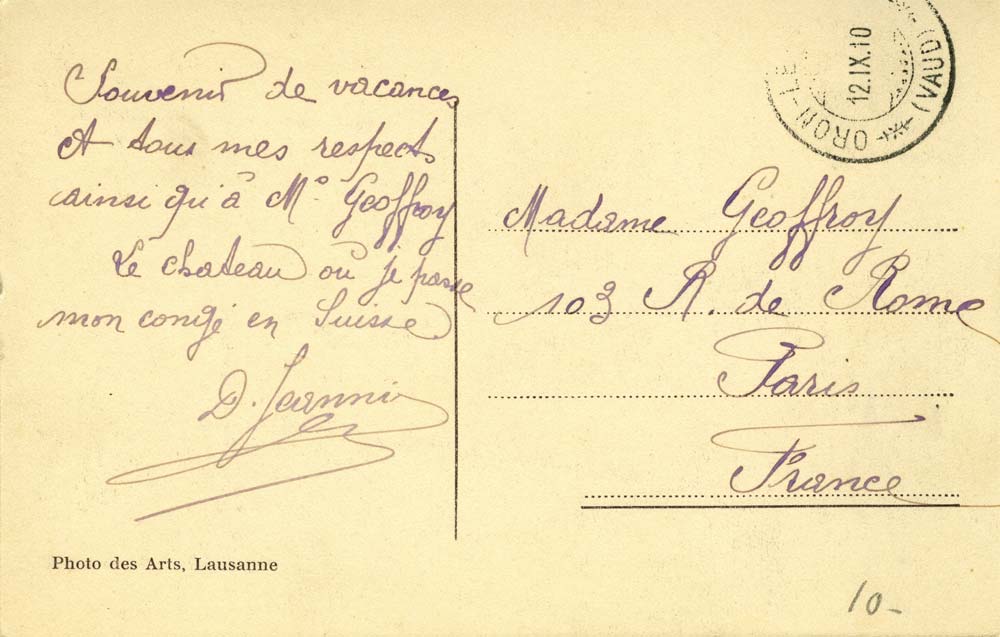 Souvenir de vacances
et tous mes respects
ainsi qu'à Mr Geoffroy
Le chateau où je passe
mon congé en Suisse
D. Jeannin
Photo des Arts, Lausanne
ORON-L
(VAUD)
12.IX.10
Madame Geoffroy
103 R. de Rome
Paris
France
10-